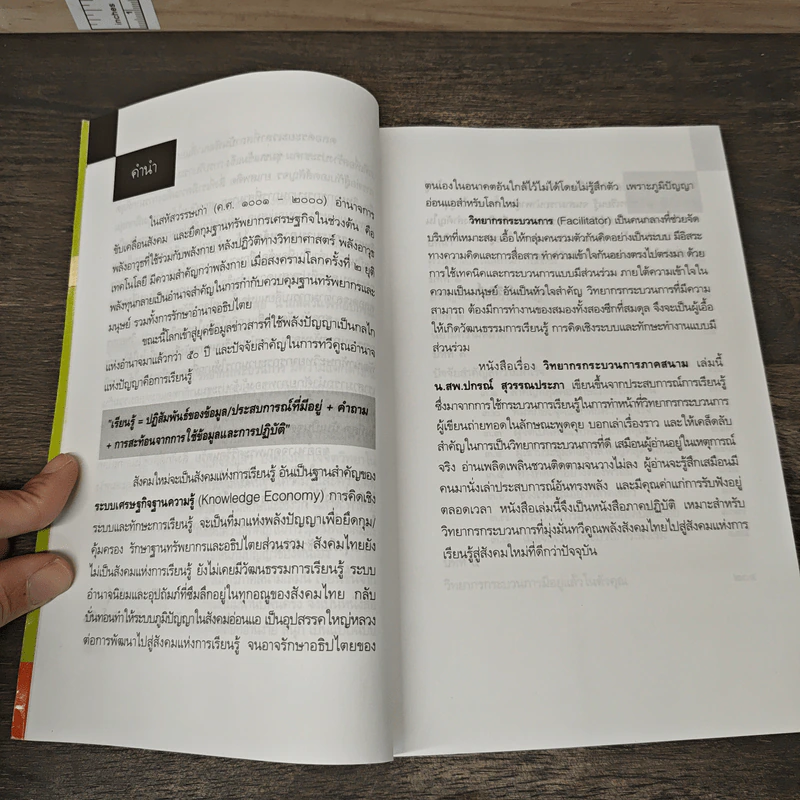 inches
1
คำนำ
ในสหัสวรรษเก่า (ค.ศ. ๑๐๐๑ – ๒๐๐๐) อำนาจการ
ขับเคลื่อนสังคม และยึดกุมฐานทรัพยากรเศรษฐกิจในช่วงต้น คือ
พลังอาวุธที่ใช้ร่วมกับพลังกาย หลังปฏิวัติทางวิทยาศาสตร์ พลังอาวุธ
เทคโนโลยี มีความสำคัญกว่าพลังกาย เมื่อสงครามโลกครั้งที่ ๒ ยุติ
พลังทุนกลายเป็นอำนาจสำคัญในการกำกับควบคุมฐานทรัพยากรและ
มนุษย์ รวมทั้งการรักษาอำนาจอธิปไตย
ขณะนี้โลกเข้าสู่ยุคข้อมูลข่าวสารที่ใช้พลังปัญญาเป็นกลไก
แห่งอำนาจมาแล้วกว่า ๕๐ ปี และปัจจัยสำคัญในการทวีคูณอำนาจ
แห่งปัญญาคือการเรียนรู้
"เรียนรู้ = ปฏิสัมพันธ์ของข้อมูล/ประสบการณ์ที่มีอยู่ + คำถาม
+ การสะท้อนจากการใช้ข้อมูลและการปฏิบัติ"
สังคมใหม่จะเป็นสังคมแห่งการเรียนรู้ อันเป็นฐานสำคัญของ
ระบบเศรษฐกิจฐานความรู้ (Knowledge Economy) การคิดเชิง
ระบบและทักษะการเรียนรู้ จะเป็นที่มาแห่งพลังปัญญาเพื่อยึดกุม/
คุ้มครอง รักษาฐานทรัพยากรและอธิปไตยส่วนรวม สังคมไทยยัง
ไม่เป็นสังคมแห่งการเรียนรู้ ยังไม่เคยมีวัฒนธรรมการเรียนรู้ ระบบ
อำนาจนิยมและอุปถัมภ์ที่ซึมลึกอยู่ในทุกอณูของสังคมไทย กลับ
บั่นทอนทำให้ระบบภูมิปัญญาในสังคมอ่อนแอ เป็นอุปสรรคใหญ่หลวง
ต่อการพัฒนาไปสู่สังคมแห่งการเรียนรู้ จนอาจรักษาอธิปไตยของ
ตนเองในอนาคตอันใกล้ไว้ไม่ได้โดยไม่รู้สึกตัว เพราะภูมิปัญญา
อ่อนแอสำหรับโลกใหม่
วิทยากรกระบวนการ (Facilitator) เป็นคนกลางที่ช่วยจัด
บริบทที่เหมาะสม เอื้อให้กลุ่มคนรวมตัวกันคิดอย่างเป็นระบบ มีอิสระ
ทางความคิดและการสื่อสาร ทำความเข้าใจกันอย่างตรงไปตรงมา ด้วย
การใช้เทคนิคและกระบวนการแบบมีส่วนร่วม ภายใต้ความเข้าใจใน
ความเป็นมนุษย์ อันเป็นหัวใจสำคัญ วิทยากรกระบวนการที่มีความ
สามารถ ต้องมีการทำงานของสมองทั้งสองซีกที่สมดุล จึงจะเป็นผู้เอื้อ
ให้เกิดวัฒนธรรมการเรียนรู้ การคิดเชิงระบบและทักษะทำงานแบบมี
ส่วนร่วม
หนังสือเรื่อง วิทยากรกระบวนการภาคสนาม เล่มนี้
น.สพ.ปกรณ์ สุวรรณประภา เขียนขึ้นจากประสบการณ์การเรียนรู้
ซึ่งมาจากการใช้กระบวนการเรียนรู้ในการทำหน้าที่วิทยากรกระบวนการ
ผู้เขียนถ่ายทอดในลักษณะพูดคุย บอกเล่าเรื่องราว และให้เคล็ดลับ
สำคัญในการเป็นวิทยากรกระบวนการที่ดี เสมือนผู้อ่านอยู่ในเหตุการณ์
จริง อ่านเพลิดเพลินชวนติดตามจนวางไม่ลง ผู้อ่านจะรู้สึกเสมือนมี
คนมานั่งเล่าประสบการณ์อันทรงพลัง และมีคุณค่าแก่การรับฟังอยู่
ตลอดเวลา หนังสือเล่มนี้จึงเป็นหนังสือภาคปฏิบัติ เหมาะสำหรับ
วิทยากรกระบวนการที่มุ่งมั่นทวีคูณพลังสังคมไทยไปสู่สังคมแห่งการ
เรียนรู้สู่สังคมใหม่ที่ดีกว่าปัจจุบัน